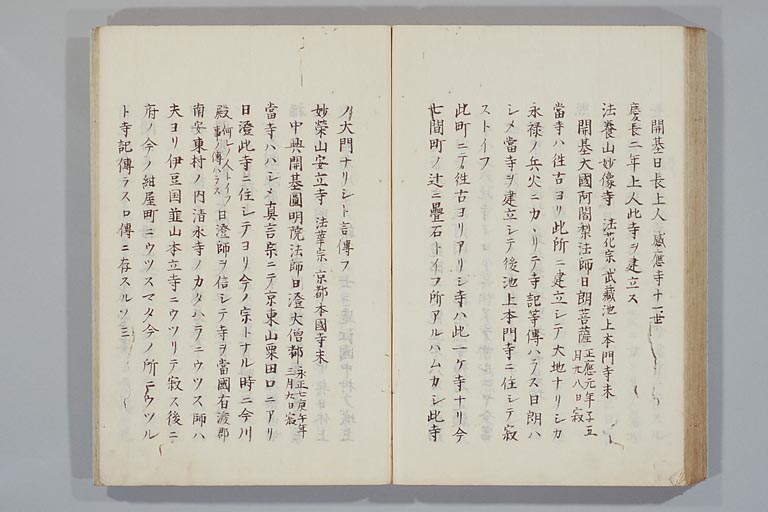 開基日長上人 感應寺十一世
慶長二年上人此寺ヲ建立ス
法養山妙像寺 法花宗 武藏池上本門寺末
開基大國阿闍梨法師日朗菩薩 正應元年子五月廿八日寂
當寺ハ往古ヨリ此所ニ建立シテ大地ナリシカ
永禄ノ兵火ニカヽリテ寺記等傳ハラス日朗ハ
シメ當寺ヲ建立シテ後池上本門寺ニ住シテ寂
ストイフ
此町ニテ往古ヨリアリシ寺ハ此一ケ寺ナリ今
七間町ノ辻ニ疊石トイフ所アルハムカシ此寺
ノ大門ナリシト言傳フ
妙榮山安立寺 法華宗 京都本國寺末
中興開基圓明院法師日澄大僧都 永正七庚午年二月九日寂
當寺ハハシメ真言宗ニテ京東山粟田口ニアリ
日澄此寺ニ住シテヨリ今ノ宗トナル時ニ今川
殿 何レノ人トイフ事ヲ傳ハラス 日澄師ヲ信シテ寺ヲ當國有渡郡
南安東村ノ内清水寺ノカタハラニウツス師ハ
夫ヨリ伊豆国韮山本立寺ニウツリテ寂ス後ニ
府ノ今ノ紺屋町ニウツスマタ今ノ所ニウツル
ト寺記傳ラスロ傳ニ存スルノミ